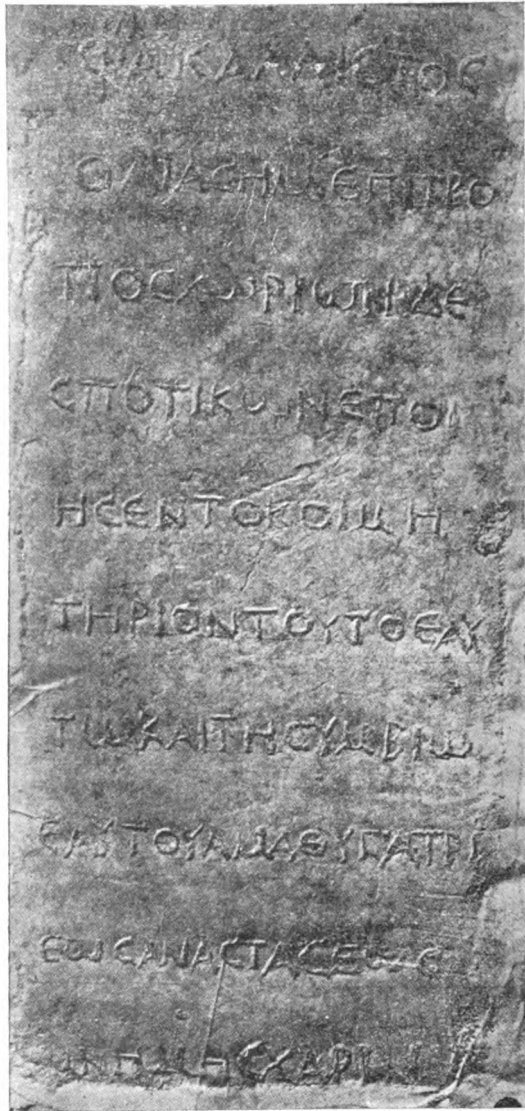 ΦΛ ΚΑΛΛΙϹΤΟϹ
Ο ΔΙΑϹΗΜ ΕΠΙΤΡΟ
ΠΟϹ ΧΩΡΙΩΝ ΔΕ
ϹΠΟΤΙΚΩΝ ΕΠΟΙ
ΗϹΕΝ ΤΟ ΚΟΙΜΗ
ΤΗΡΙΟΝ ΤΟΥΤΟ ΕΑΥ
ΤΩ ΚΑΙ ΤΗ ϹΥΜΒΙΩ
ΕΑΥΤΟΥ ΑΜΑ ΘΥΓΑΤΡΙ
ΕΩϹ ΑΝΑϹΤΑϹΕΩϹ
ΜΝΗΜΗϹ ΧΑΡΙΝ